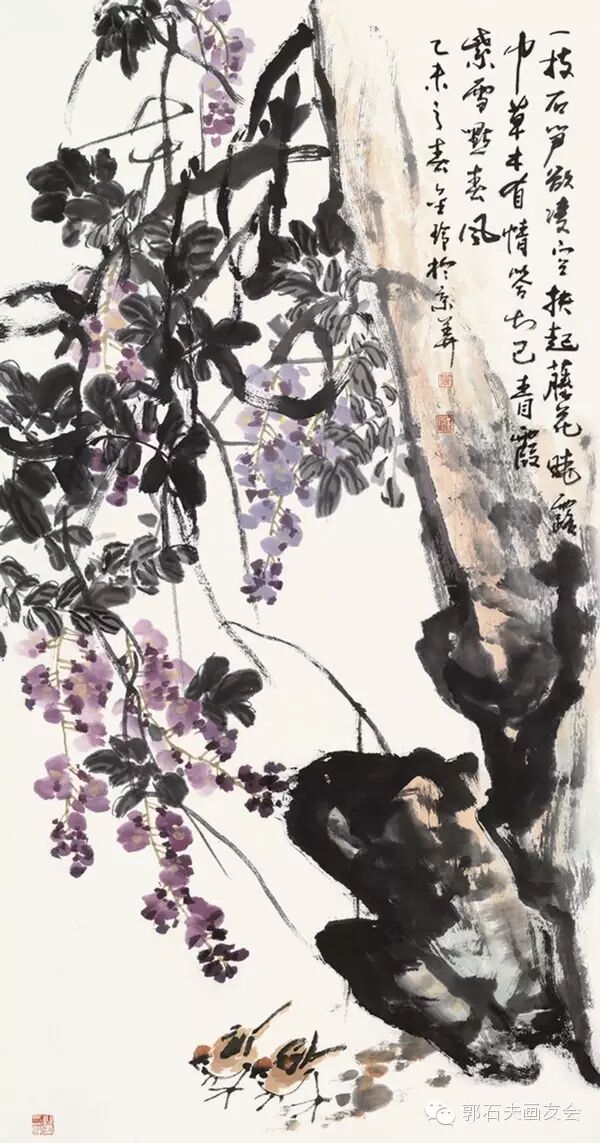 一枝石笋欲凌空扶起藤花晓露
中草木有情答知己青霞
紫雪点春风
乙未之春金玲於京华
郭石夫画友会